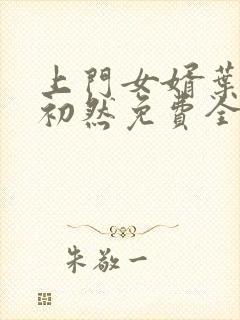 上門女婿葉
初然免費全
朱敬一